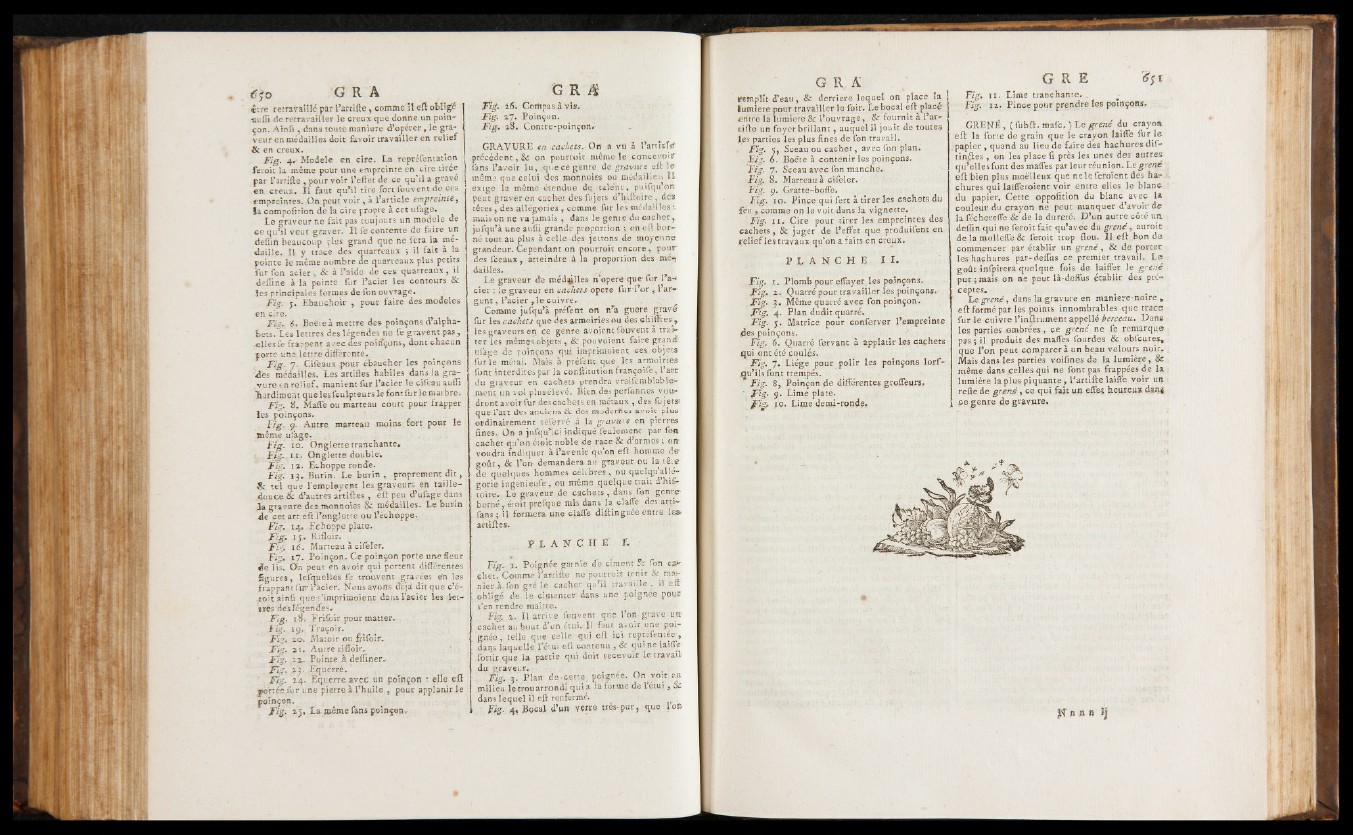 650 GRA
être retravaillé par l'artiste, comme il est obligé
aussi de retravailler le creux que donne un poin-
çon. Ainsi, dans toute maniere d'opérer, le gra-
veur en médailles doit savoir travailler en relief
& en creux.
Fig. 4. Modele en cire. La représentation
seroit la même pour une empreinte en cire tirée
par l'artiste, pour voir l'effet de ce qu'il a gravé
en creux. Il faut qu'il tire fort souvent de ces
empreintes. On peut voir, à l'article empreinte,
la composition de la cire propre à cet usage.
Le graveur ne fait pas toujours un modele de
ce qu'il veut graver. Il se contente de faire un
dessin beaucoup plus grand que ne sera la mé-
daille. Il y trace des quarreaux ; il fait à la
pointe le même nombre de quarreaux plus petits
sur son acier, & à l'aide de ces quarreaux, il
dessine à la pointe sur l'acier les contours &
les principales formes de son ouvrage.
Fig. 5. Ebauchoir, pour faire des modeles
en cire.
Fig. 6. Boëte à mettre des poinçons d'alpha-
bets. Les lettres des légendes ne se gravent pas,
elles se frappent avec des poinçons, dont chacun
porte une lettre différente.
Fig. 7. Ciseaux pour ébaucher les poinçons
des médailles. Les artistes habiles dans la gra-
vure en relief, manient sur l'acier le ciseau aussi
hardiment que les sculpteurs le font sur le marbre.
Fig. 8. Masse ou marteau court pour frapper
les poinçons.
Fig. 9. Autre marteau moins fort pour le
même usage.
Fig. 10. Onglette tranchante.
Fig. 11. Onglette double.
Fig. 12. Echoppe ronde.
Fig. 13. Burin. Le burin, proprement dit,
& tel que l'emploient les graveurs en taille-
douce & d'autres artistes, est peu d'usage dans
la gravure des monnoies & médailles. Le burin
de cet art est l'onglette ou l'échoppe.
Fig. 14. Echoppe plate.
Fig. 15. Rifloir.
Fig. 16. Marteau à ciseler.
Fig. 17. Poinçon. Ce poinçon porte une fleur
de lis. On peut en avoir qui portent différentes
figures, lesquelles se trouvent gravées en les
frappant sur l'acier. Nous avons déja dit que c'é-
toit ainsi que s'imprimoient dans l'acier les let-
tres des légendes.
Fig. 18. Frisoir pour matter.
Fig. 19. Traçoir.
Fig. 20. Matoir ou frisoir.
Fig. 21. Autre rifloir.
Fig. 22. Pointe à dessiner.
Fig. 23. Equerre.
Fig. 24. Equerre avec un poinçon : elle est
portée sur une pierre à l'huile, pour applanir le
poinçon.
Fig. 25. La même sans poinçon.
GRA
Fig. 26. Compas à vis.
Fig. 27. Poinçon.
Fig. 28. Contre-poinçon.
GRAVURE en cachets. On a vu à l'article
précédent, & on pourroit même le concevoir
sans l'avoir lu, que ce genre de gravure est le
même que celui des monnoies ou médailles. Il
exige la même étendue de talent, puisqu'on
peut graver en cachet des sujets d'histoire, des
têtes, des allégories, comme sur les médailles :
mais on ne va jamais, dans le genre du cachet,
jusqu'à une aussi grande proportion ; on est bor-
né tout au plus à celle des jettons de moyenne
grandeur. Cependant on pourroit encore, pour
des sceaux, atteindre à la proportion des mé-
dailles.
Le graveur de médailles n'opere que sur l'a-
cier : le graveur en cachets opere sur l'or, l'ar-
gent, l'acier, le cuivre.
Comme jusqu'à présent on n'a guere gravé
sur les cachets que des armoiries ou des chiffres,
les graveurs en ce genre avoient souvent à trai-
ter les mêmes objets, & pouvoient faire grand
usage de poinçons qui imprimoient ces objets
sur le métal. Mais à présent que les armoiries
sont interdites par la constitution françoise, l'art
du graveur en cachets prendra vraisemblable-
ment un vol plus élevé. Bien des personnes vou-
dront avoir sur des cachets en métaux, des sujets
que l'art des anciens & des modernes avoit plus
ordinairement réservé à la gravure en pierres
fines. On a jusqu'ici indiqué seulement par son
cachet qu'on étoit noble de race & d'armes : on
voudra indiquer à l'avenir qu'on est homme de
goût, & l'on demandera au graveur ou la tête
de quelques hommes célebres, ou quelqu'allé-
gorie ingénieuse, ou même quelque trait d'his-
toire. Le graveur de cachets, dans son genre
borné, étoit presque mis dans la classe des arti-
sans ; il formera une classe distinguée entre les
artistes.
PLANCHE I.
Fig. 1. Poignée garnie de ciment & son ca-
chet. Comme l'artiste ne pourroit tenir & ma-
nier à son gré le cachet qu'il travaille, il est
obligé de le cimenter dans une poignée pour
s'en rendre maître.
Fig. 2. Il arrive souvent que l'on grave un
cachet au bout d'un étui. Il faut avoir une poi-
gnée, telle que celle qui est ici représentée,
dans laquelle l'étui est contenu, & qui ne laisse
sortir que la partie qui doit recevoir le travail
du graveur.
Fig. 3. Plan de cette poignée. On voit au
milieu le trou arrondi qui a la forme de l'étui, &
dans lequel il est renfermé.
Fig. 4. Bocal d'un verre très-pur, que l'on
GRA
remplit d'eau, & derriere lequel on place la
lumiere pour travailler le soir. Le bocal est placé
entre la lumiere & l'ouvrage, & fournit à l'ar-
tiste un foyer brillant, auquel il jouit de toutes
les parties les plus fines de son travail.
Fig. 5. Sceau ou cachet, avec son plan.
Fig. 6. Boëte à contenir les poinçons.
Fig. 7. Sceau avec son manche.
Fig. 8. Marteau à ciseler.
Fig. 9. Gratte-bosse.
Fig. 10. Pince qui sert à tirer les cachets du
feu, comme on le voit dans la vignette.
Fig. 11. Cire pour tirer les empreintes des
cachets, & juger de l'effet que produisent en
relief les travaux qu'on a faits en creux.
PLANCHE II.
Fig. 1. Plomb pour essayer les poinçons.
Fig. 2. Quarré pour travailler les poinçons.
Fig. 3. Même quarré avec son poinçon.
Fig. 4. Plan dudit quarré.
Fig. 5. Matrice pour conserver l'empreinte
des poinçons.
Fig. 6. Quarré servant à applatir les cachets
qui ont été coulés.
Fig. 7. Liége pour polir les poinçons lors-
qu'ils sont trempés.
Fig. 8, Poinçon de différentes grosseurs.
Fig. 9. Lime plate.
Fig. 10. Lime demi-ronde.
GRE 651
Fig. 11. Lime tranchante.
Fig. 12. Pince pour prendre les poinçons.
GRENÉ, (subst. masc.) Le grené du crayon
est la sorte de grain que le crayon laisse sur le
papier, quand au lieu de faire des hachures dis-
tinctes, on les place si près les unes des autres
qu'elles font des masses par leur réunion. Le grené
est bien plus moëlleux que ne le seroient des ha-
chures qui laisseroient voir entre elles le blanc
du papier. Cette opposition du blanc avec la
couleur du crayon ne peut manquer d'avoir de
la sécheresse & de la dureté. D'un autre côté un
dessin qui ne seroit fait qu'avec du grené, auroit
de la mollesse & seroit trop flou. Il est bon de
commencer par établir un grené, & de porter
les hachures par-dessus ce premier travail. Le
goût inspirera quelque fois de laisser le grené
pur ; mais on ne peut là-dessus établir des pré-
ceptes.
Le grené, dans la gravure en maniere-noire,
est formé par les points innombrables que trace
sur le cuivre l'instrument appellé berceau. Dans
les parties ombrées, ce grené ne se remarque
pas ; il produit des masses sourdes & obscures,
que l'on peut comparer à un beau velours noir.
Mais dans les parties voisines de la lumière, &
même dans celles qui ne sont pas frappées de la
lumière la plus piquante, l'artiste laisse voir un
reste de grené, qui fait un effet heureux dans
ce genre de gravure.
Nnnn ij